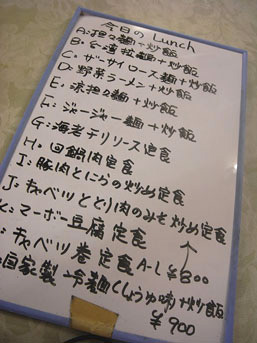 今日のLunch
A:担々麺+炒飯
B:台湾拉麺+炒飯
C.ザーサイロース麺+炒飯
D:野菜ラーメン+炒飯
E:涼担々麺+炒飯
F:ジャージャー麺+炒飯
G:海老チリソース定食
H:回鍋肉定食
I:豚肉とにらの炒め定食
J:キャベツととり肉のみそ炒め定食
K:マーボー豆腐定食
:キャベツ巻定食 A-L ¥800
:自家製 冷麺(しょうゆ味)+炒飯
¥900